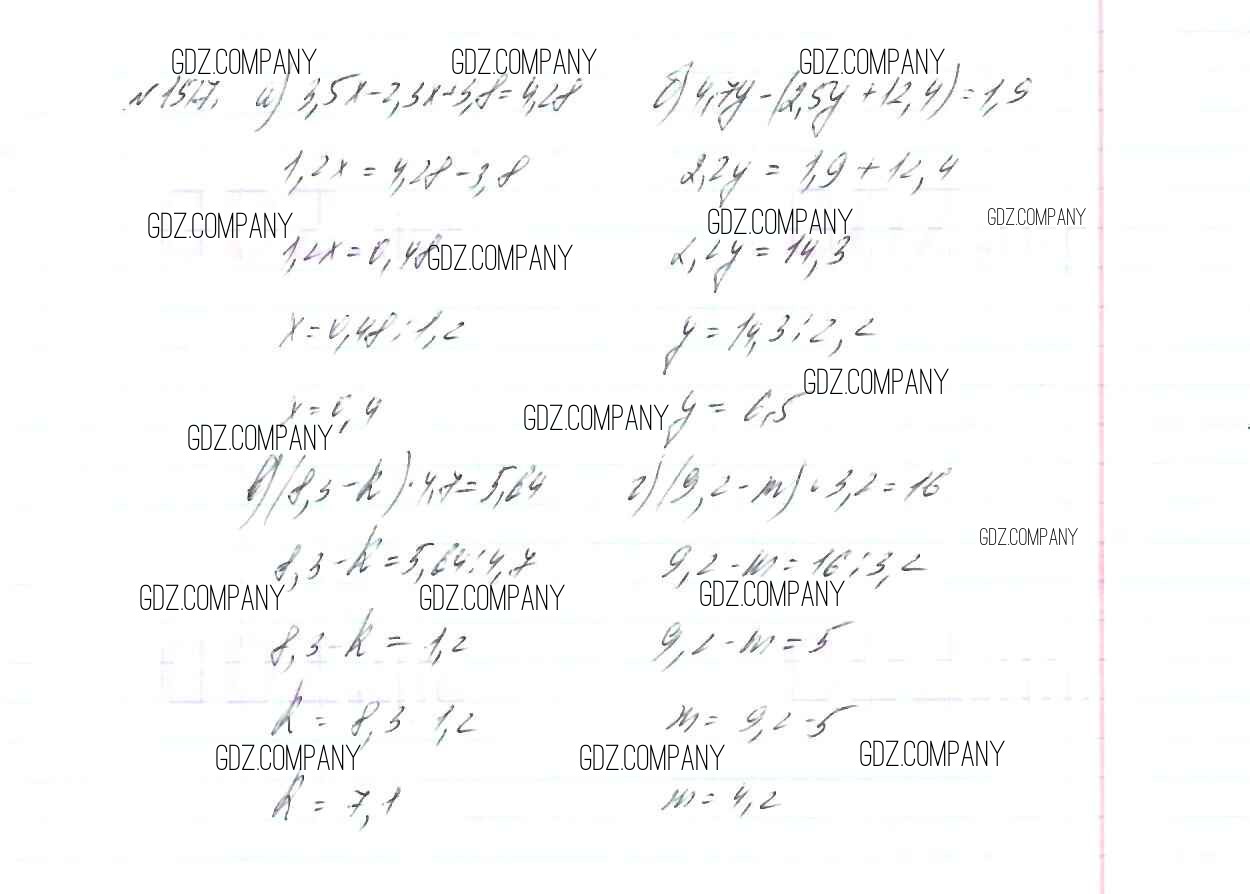 GDZ.COMPANY GDZ.COMPANY GDZ.COMPANY
№1517. а) 3,5x-2,3x+3,8=4,28 б) 4,7y-(2,5y+12,4)=1,9
1,2x=4,28-3,8 2,2y=1,9+12,4
GDZ.COMPANY GDZ.COMPANY GDZ.COMPANY
1,2x=0,48 GDZ.COMPANY 2,2y=14,3
x=0,48:1,2 y=14,3:2,2
GDZ.COMPANY
x=0,4 GDZ.COMPANY y=6,5
GDZ.COMPANY
в) (8,3-k)·4,7=5,64 г) (9,2-m)·3,2=16
GDZ.COMPANY
8,3-k=5,64:4,7 9,2-m=16:3,2
GDZ.COMPANY GDZ.COMPANY GDZ.COMPANY
8,3-k=1,2 9,2-m=5
k=8,3-1,2 m=9,2-5
GDZ.COMPANY GDZ.COMPANY GDZ.COMPANY
k=7,1 m=4,2